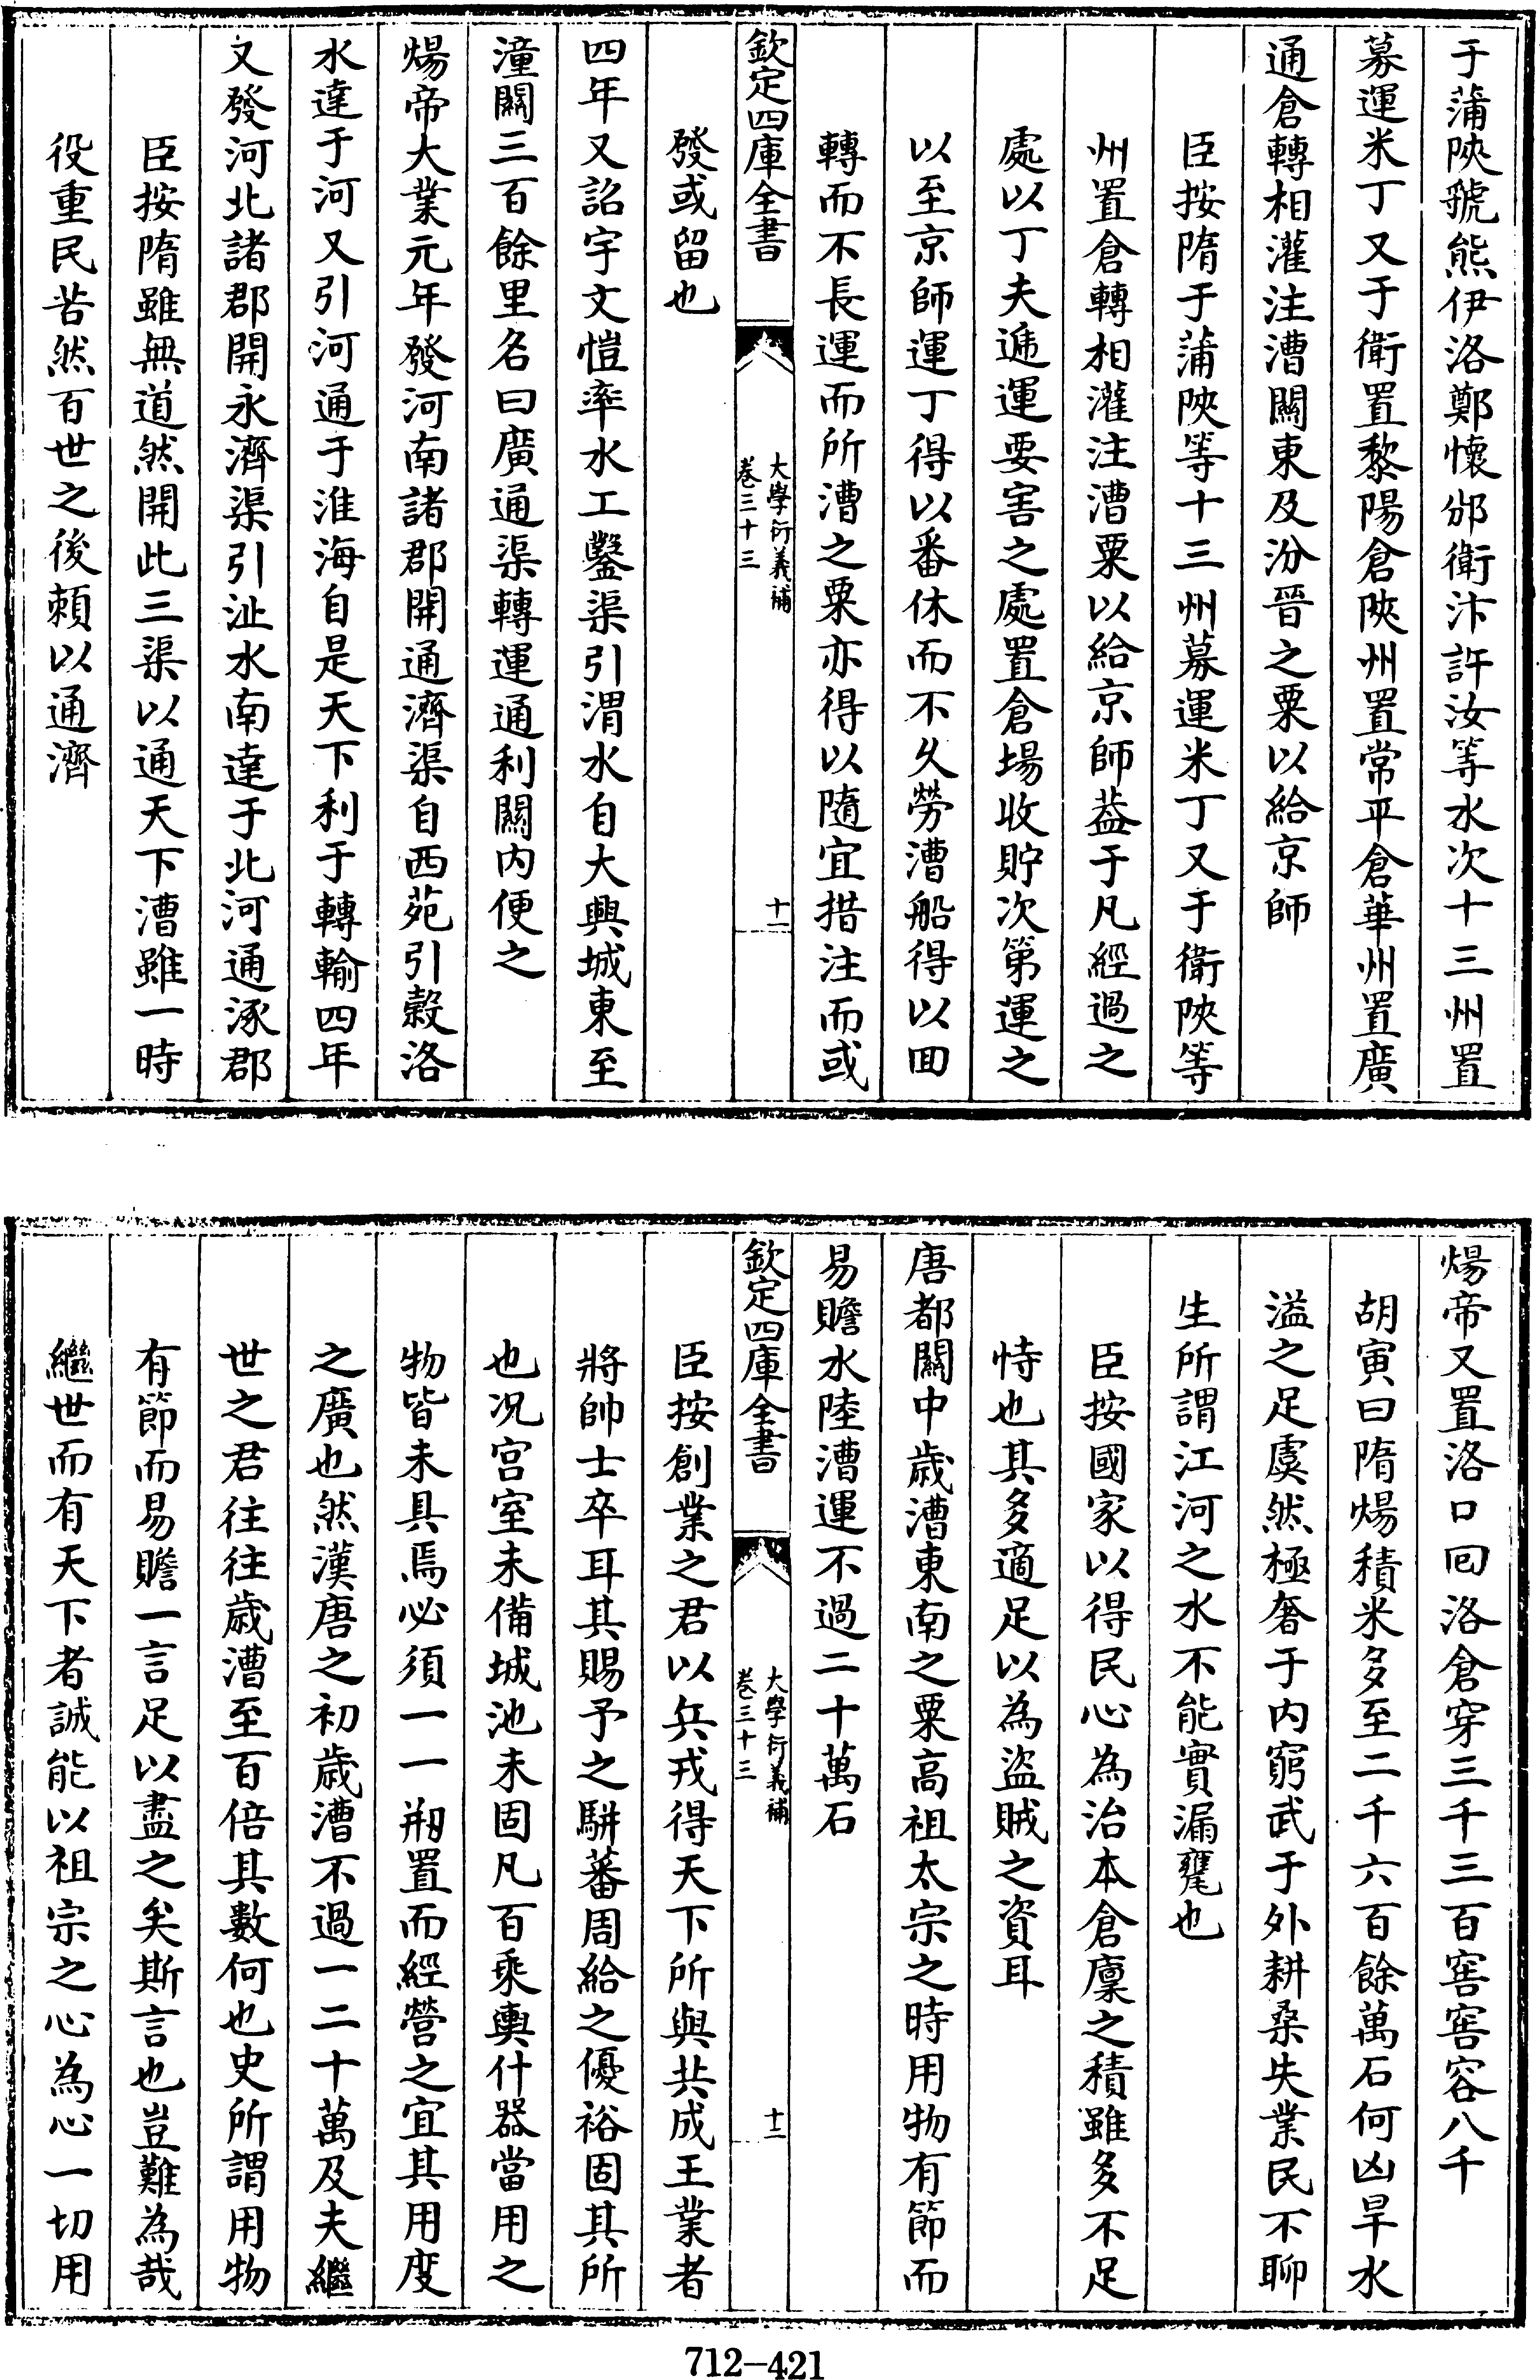 于蒲陜虢熊伊洛鄭懷邠衛汴許汝等水次十三州置
募運米丁又于衛置黎陽倉陜州置常平倉華州置廣
通倉轉相灌注漕關東及汾晉之粟以給京師
臣按隋于蒲陜等十三州募運米丁又于衛陜等
州置倉轉相灌注漕粟以給京師葢于凡經過之
處以丁夫遞運要害之處置倉場收貯次第運之
以至京師運丁得以番休而不久勞漕船得以回
轉而不長運而所漕之粟亦得以隨宜措注而或
欽定四庫全書
大學衍義補
卷三十三
十一
發或留也
四年又詔宇文愷率水工鑿渠引渭水自大興城東至
潼關三百餘里名曰廣通渠轉運通利關内便之
煬帝大業元年發河南諸郡開通濟渠自西苑引榖洛
水達于河又引河通于淮海自是天下利于轉輸四年
又發河北諸郡開永濟渠引沁水南達于北河通涿郡
臣按隋雖無道然開此三渠以通天下漕雖一時
役重民苦然百世之後頼以通濟
煬帝又置洛口回洛倉穿三千三百窖窖容八千
胡寅曰隋煬積米多至二千六百餘萬石何凶旱水
溢之足虞然極奢于内窮武于外耕桑失業民不聊
生所謂江河之水不能實漏甕也
臣按國家以得民心為治本倉廪之積雖多不足
恃也其多適足以為盜賊之資耳
唐都關中歲漕東南之粟高祖太宗之時用物有節而
易贍水陸漕運不過二十萬石
欽定四庫全書
大學衍義補
卷三十三
十二
臣按創業之君以兵戎得天下所與共成王業者
將帥士卒耳其賜予之駢蕃周給之優裕固其所
也况宫室未備城池未固凡百乘輿什器當用之
物皆未具焉必須一一剏置而經營之宜其用度
之廣也然漢唐之初歲漕不過一二十萬及夫繼
世之君往往歲漕至百倍其數何也史所謂用物
有節而易贍一言足以盡之矣斯言也豈難為哉
繼世而有天下者誠能以祖宗之心為心一切用
712-421